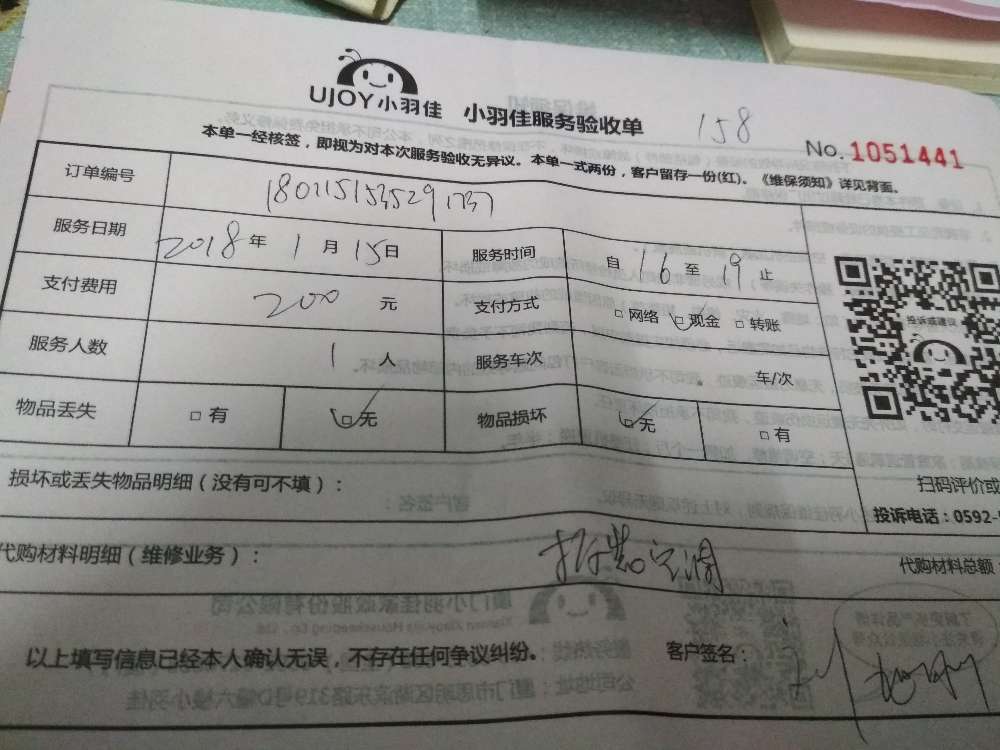 UJOY小羽佳 小羽佳服务验收单 158
No. 1051441
本单一经核签，即视为对本次服务验收无异议。本单一式两份，客户留存一份(红)。《维保须知》详见背面。
订单编号 1801151535291737
服务日期 2018年1月15日 服务时间 自16至19止
支付费用 200元 支付方式 □网络 □现金 □转账
投诉或建议
服务人数 1人 服务车次 车/次
物品丢失 □有 □无 物品损坏 □无 □有
损坏或丢失物品明细（没有可不填）： 扫码评价或
投诉电话：0592-
代购材料明细（维修业务）： 拆装空调 代购材料总额
以上填写信息已经本人确认无误，不存在任何争议纠纷。 客户签名：